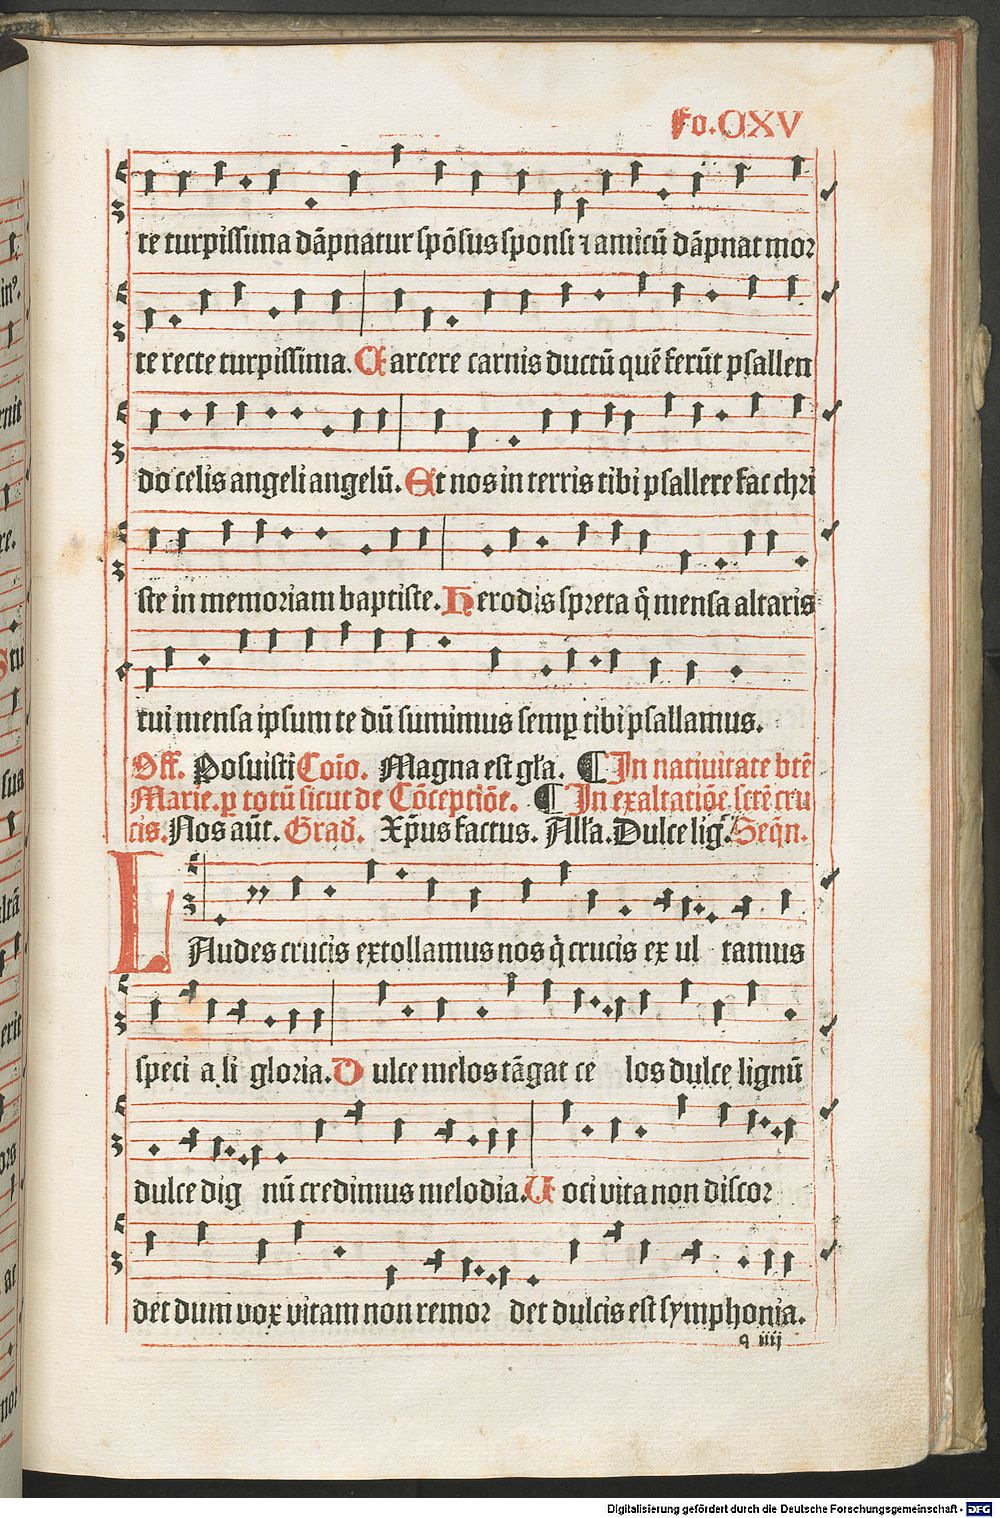 Fo.CXV
te turpissima dāpnatur spōsus sponsi ⁊ amicū dāpnat mor
te recte turpissima. Carcere carnis ductū quē ferūt psallen
do celis angeli angelū. Et nos in terris tibi psallere fac chri
ste in memoriam baptiste. Herodis spreta q̄ mensa altaris
tui mensa ipsum te dū sumimus semꝑ tibi psallamus.
Off. Posuisti Coīo. Magna est gl̄a. ¶ In natiuitate btē
Marie. ꝑ totū sicut de Cōceptiōe. ¶ In exaltatiōe sctē cru
cis. Nos aūt. Grad̄. Xp̄us factus. All̄a. Dulce liḡ. Seq̄n.
LAudes crucis extollamus nos q̇ crucis ex ul tamus
speci a li gloria. Dulce melos tāgat ce los dulce lignū
dulce dig nū credimus melodia. Voci vita non discor
det dum vox vitam non remor det dulcis est symphonia.
q iiij
Digitalisierung gefördert durch die Deutsche Forschungsgemeinschaft - DFG